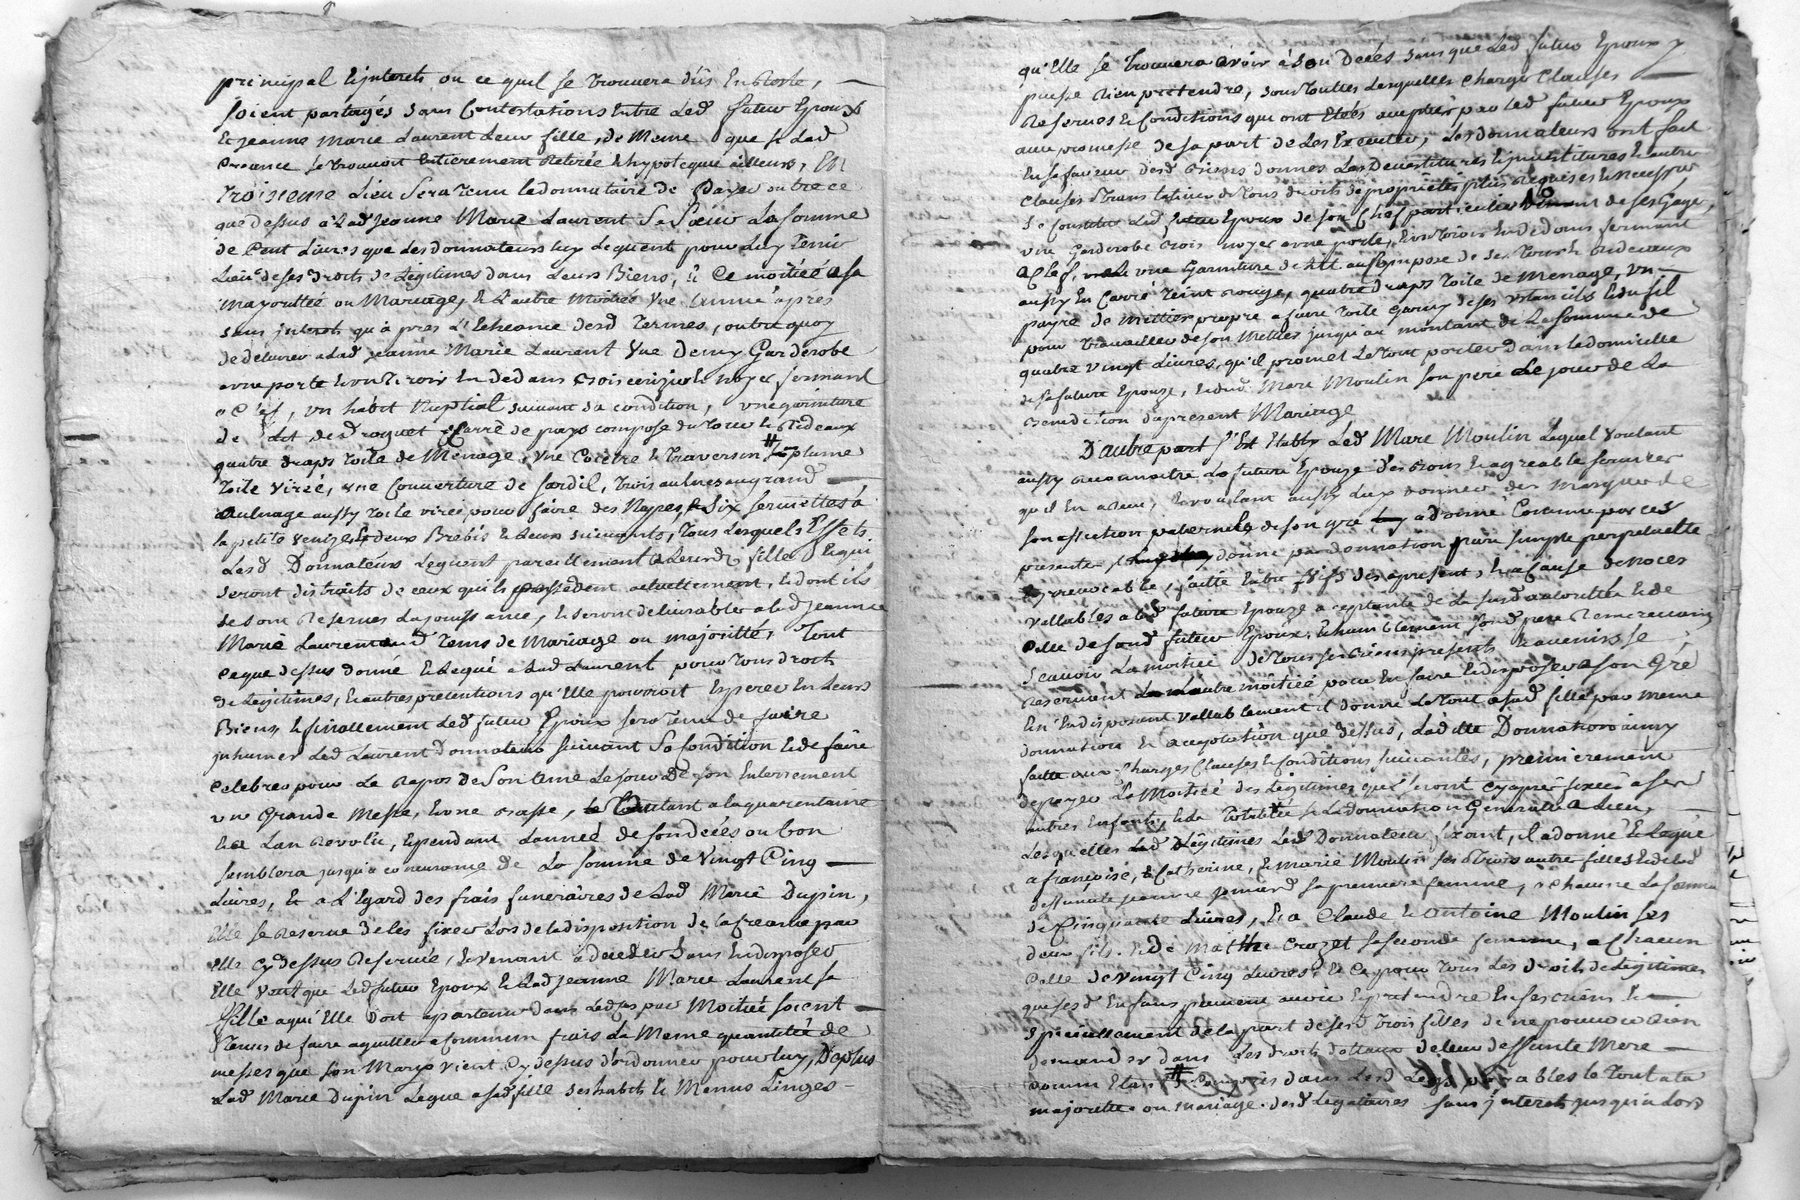 principal & jnterets ou ce quil se trouvera dûs En Reste,
soient partagés sans Contestations Entre Led futur Epoux
Et jeanne marie Laurent Leur fille, de Meme que si Lad
Creance se trouvoit Entierement Retirée & hypotequée ailleurs, En
troisieme Lieu sera tenu Le donnataire de Payer outre ce
que dessus à Lad Jeanne Marie Laurent Sa Sœur La somme
de Cent Livres que Les donnateurs luy Leguent pour Luy tenir
Lieu de ses droits de Legitimes dans Leurs Biens, & Ce moitiée a sa
majoritée ou Mariage, & L'autre moitiée Une année après
sans jnterets qu'a pres L'Echeance desd termes, outre quoy
de delivrer a Lad jeanne Marie Laurent Une Demy Garderobe
a une porte & un tiroir En dedans Bois cerizier & Noyer fermant
a Clef, un habit Nuptial suivant sa condition, une garniture
de Lit de droguet Carré de pays composé du tour & Rideaux
quatre draps toile de Menage, Une Coietre & traversin plume
toile virée, une Couverture de sardil, trois aulnes au grand
Aulnage aussy toile virée pour faire des Napes, & Six serviettes à
la petite Venize, & deux Brebis & Leurs suivants, tous Lesquels Effets
Lesd Donnateurs Leguent pareillement a Leurd fille & qui
seront distraits de ceux qu'ils possedent actuellement, & dont ils
se sont Reserves La jouissance, & seront delivrables a lad Jeanne
Marie Laurent aud tems de Mariage ou majoritté, Tout
Ce que dessus donné & Legué a Lad Laurent pour tous droits
de Legitimes, & autres pretentions qu'Elle pourroit Esperer En Leurs
Biens, & finallement Led futur Epoux sera tenu de faire
jnhumer Led Laurent Donnateur suivant Sa Condition & de faire
Celebrer pour Le Repos de Son Ame Le jour De son Enterrement
une Grande Messe, & une Basse, autant a la quarentaine
& a L'an Revolu, & pendant L'année de son decées ou bon
semblera jusqu'a concurance de La somme de Vingt Cinq
Livres, Et a L'Egard des frais funeraires de Lad Marie Dupin,
Elle se Reserve de les fixer Lors de la disposition de la Creance par
Elle Cy dessus Reservée, & venant a deceder Sans En disposer
Elle veut que Led futur Epoux & Lad Jeanne Marie Laurent sa
fille a qui Elle Doit apartenir dans Led cas par Moitiée soient
tenus de faire aquitter a commun frais La Meme quantitée de
messes que son Mary vient Cy dessus d'ordonner pour luy, De plus
Lad Marie Dupin Legue a sad fille ses habits & Menus Linges
qu'Elle se trouvera avoir à son Decés sans que Led futur Epoux y
puisse Rien pretendre, sous toutes Lesquelles charges Clauses
Reserves & Conditions qui ont Etés acceptés par Led futur Epoux
avec promesse de sa part de Les Executer, Les donnateurs ont fait
En sa faveur desd Biens donnés Les Devestitures & investitures & autres
Clauses translatives de tous droits de propriétés plus Requises & Necessaires
Se Constitue Led futur Epoux de son Chef particulier de ses Gages,
une Garderobe Bois noyer a une porte, & un tiroir En dedans fermant
a Clef, une Garniture de Lit aussy composé de ses tours & Rideaux
aussy En Carré teint Rouge, quatre draps toile de Menage, Un
payre de Mettier propre a faire toile garny de ses Utancils & du fil
pour travailler de son Mettier jusqu'au montant de La somme de
quatre vingt Livres, qu'il promet Le tout porter Dans Le domicille
de sa future Epouze, & dud Marc Moulin son pere Le jour de La
Benediction du present Mariage
D'autre part s'Est Etably Led Marc Moulin Lequel voulant
aussy reconnoitre La future Epouze des Bons & agreables services
qu'il En a Reu, & voulant aussy Luy donner des Marques de
son affection paternelle de son gré a donné Comme par ces
presentes donne par donnation pure simple perpetuelle
& jrrevocable, faitte Entre vifs des apresent, & a Cause de noces
vallables a lad future Epouze acceptante de La susd autorité & de
Celle de sond futur Epoux, & humblement sond pere Remerciant
Scavoir La moitiée de tous ses Biens presents & avenirs se
Reservant L'autre moitiée pour En faire & disposer a son Gré
En En disposant vallablement il donne Le tout a sad fille par meme
donnation & acceptation que dessus, Ladite Donnation ainsy
faitte aux Charges Clauses & Conditions suivantes, premierement
de payer La Moitiée des Legitimes qui seront cy après fixées a ses
autres Enfants, & La totalitée si La donnation Generalle a Lieu,
Lesquelles Legitimes Led Donnateur fixant, il a donné & Legué
a françoise, Catherine, & marie Moulin ses trois autres filles & de Lad
deffunte jeanne sa premiere femme, a chacune La somme
de Cinquante Livres, & a Claude & Antoine Moulin ses
deux fils & de Mathie Crozet sa seconde femme, a Chacun
Celle de vingt Cinq Livres & Ce pour tous Les droits de Legitimes
que sesd Enfans peuvent avoir & pretendre En ses biens &
Specialement de la part de sesd trois filles de ne pouvoir Rien
demander dans Les droits dottaux de leur deffunte Mere
comme Etant Compris dans Lesd Legs payables Le tout a la
majorité ou mariage desd Legataires sans jnterets jusqu'alors